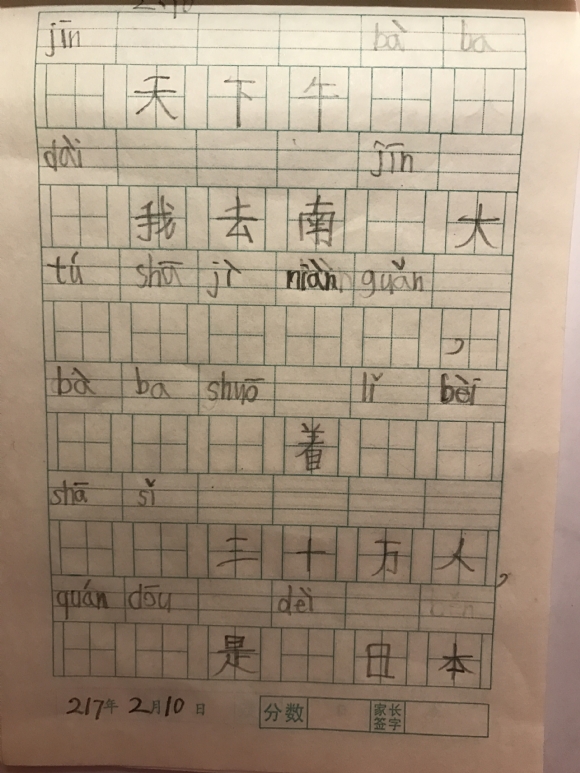 jīn bà ba
天下午
dài jīn
我去南 大
tú shā jì niàn guǎn
，
bà ba shuō lǐ bèi
着
shā sǐ
三十万人，
quán dōu dèi
是 日本
217年 2月10日 分数 家长签字